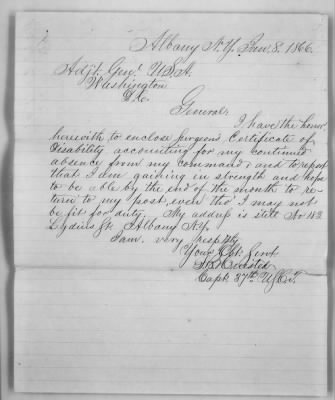 Albany N.Y. Jan. 8. 1866.
Adjt. Genl. U.S.A.
Washington
D.C.
General.
I have the honor,
herewith to enclose Surgeons Certificate of
Disability accounting for my continued
absence from my command; and to report
that I am gaining in strength and hope
to be able by the end of the month to re-
turn to my post even tho' I may not
be fit for duty. My address is still No 43
Lydius St. Albany N.Y.
I am. very respctly
Your Obt. Servt
Capt. 37th U.S.C.T.